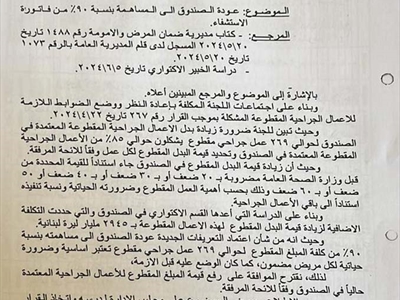 الموضوع: عودة الصندوق الى المساهمة بنسبة ٩٠٪ من فاتورة
الاستشفاء.
المرجع: - كتاب مديرية ضمان المرض والامومة رقم ١٤٨٨ تاريخ
٢٠٢٤/٥/٢٠ المسجل لدى قلم المديرية العامة بالرقم ١٠٧٣
تاريخ ٢٠٢٤/٥/٢٠.
- دراسة الخبير الاكتواري تاريخ ٢٠٢٤/٦/٥.
بالإشارة إلى الموضوع والمرجع المبينين أعلاه،
وبناء على اجتماعات اللجنة المكلفة بإعادة النظر ووضع الضوابط اللازمة
للأعمال الجراحية المقطوعة المشكلة بموجب القرار رقم ٢٦٧ تاريخ ٢٠٢٤/٢/٢٢
وحيث تبين للجنة ضرورة زيادة بدل الاعمال الجراحية المقطوعة المعتمدة في
الصندوق لحوالي ٢٦٩ عمل جراحي مقطوع يشكلون حوالي ٨٥٪ من الأعمال الجراحية
المقطوعة المعتمدة في الصندوق وتحديد قيمة البدل المقطوع لكل عمل وفقاً للائحة المرفقة.
وحيث أن زيادة قيمة البدل المقطوع في الصندوق جاء استناداً للقيمة المحددة من
قبل وزارة الصحة العامة مضروبة بـ ٢٠ ضعف او ٣٠ ضعف او ٤٠ ضعف او ٥٠
ضعف او ٦٠ ضعف وذلك بحسب أهمية العمل المقطوع وضرورته الحياتية ونسبة تنفيذه
استناداً الى باقي الأعمال الجراحية.
وبناء على الدراسة التي أعدها القسم الاكتواري في الصندوق والتي حددت التكلفة
الاضافية لزيادة البدل المقطوع لهذه الاعمال المقطوعة بـ ٢٩٤٥ مليار ليرة لبنانية.
وحيث انه من شأن اعتماد التعريفات الجديدة عودة الصندوق الى مساهمته بنسبة
٩٠٪ من كلفة المبلغ المقطوع لحوالي ٢٦٩ عمل جراحي مقطوع تعتبر اساسية وضرورية
حياتية لكل مريض مضمون، كما كان الوضع عليه قبل الازمة،
لذلك، نقترح الموافقة على رفع قيمة المبلغ المقطوع للأعمال الجراحية المعتمدة
حالياً في الصندوق وفقاً للائحة المرفقة.